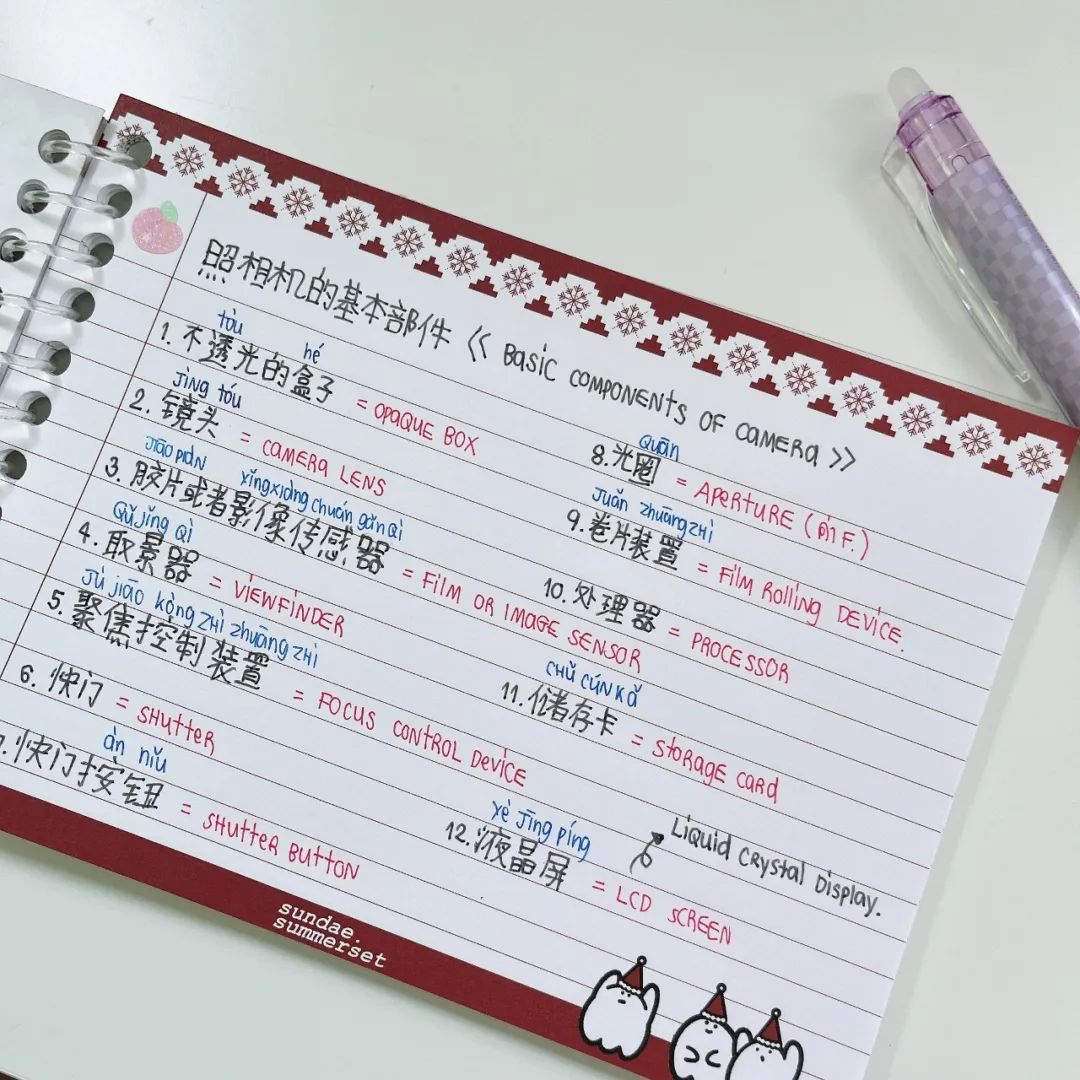 照相机的基本部件 << Basic components of camera >>
tòu hé
1. 不透光的盒子 = opaque box
jìng tóu
2. 镜头 = camera lens
jiāo piàn xǐngxiàng chuán gǎn qì
3. 胶片或者影像传感器 = Film or image sensor
Qǔ jǐng qì
4. 取景器 = viewfinder
Jù jiāo kòng zhì zhuāng zhì
5. 聚焦控制装置 = Focus control device
6. 快门 = shutter
àn niǔ
7. 快门按钮 = shutter button
Quān
8. 光圈 = Aperture (ค่า F.)
Juǎn zhuāng zhì
9. 卷片装置 = Film rolling device.
10. 处理器 = processor
chǔ cún kǎ
11. 储存卡 = storage card
yè jīng píng
12. 液晶屏 = LCD screen
Liquid crystal Display.
sundae.
summerset